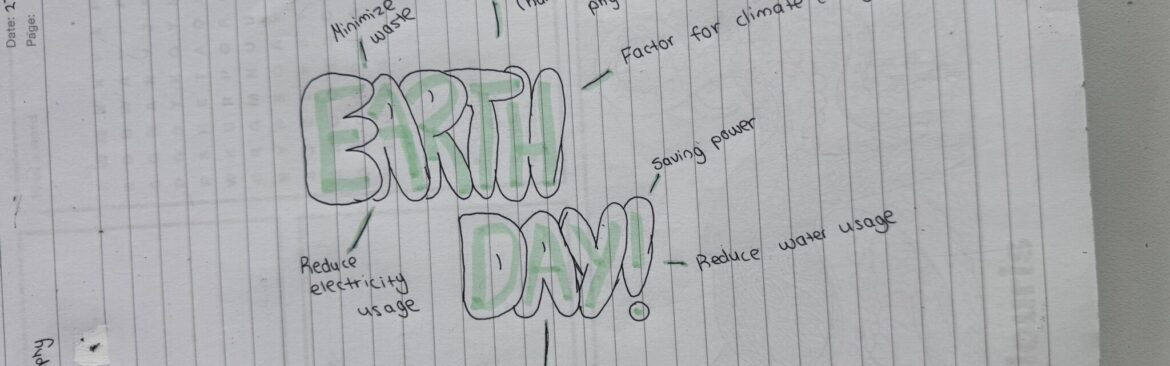 Date: 2
Page:
Minimize
waste
phy
Factor for climate
EARTH
saving power
DAY!
Reduce water usage
Reduce
electricity
usage
phy